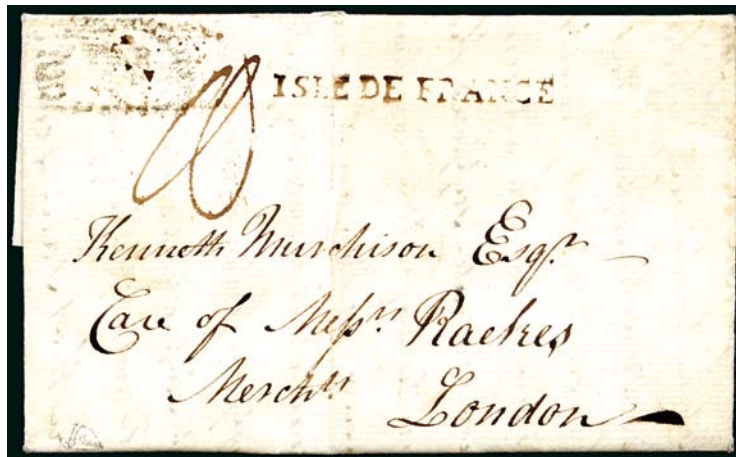 ISLE DE FRANCE
Kenneth Murchison Esqr.
Care of Messrs. Raekes
Merchts.
London